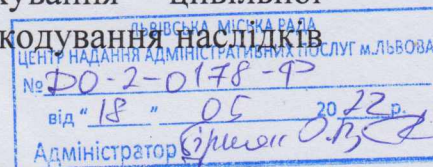 кування цивільної
кодування наслідків
ЛЬВІВСЬКА МІСЬКА РАДА
ЦЕНТР НАДАННЯ АДМІНІСТРАТИВНИХ ПОСЛУГ м.ЛЬВОВА
№ ДО-2-0178-Ф
від "18" 05 2022 р.
Адміністратор